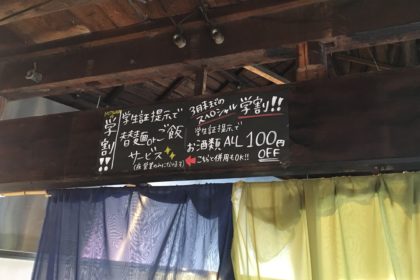 学割!!
学生証提示で
替麺or ご飯
サービス
3月末までの
スペシャル 学割!!
学生証提示で
お酒類 ALL 100円
OFF
こちらと併用もOK!!